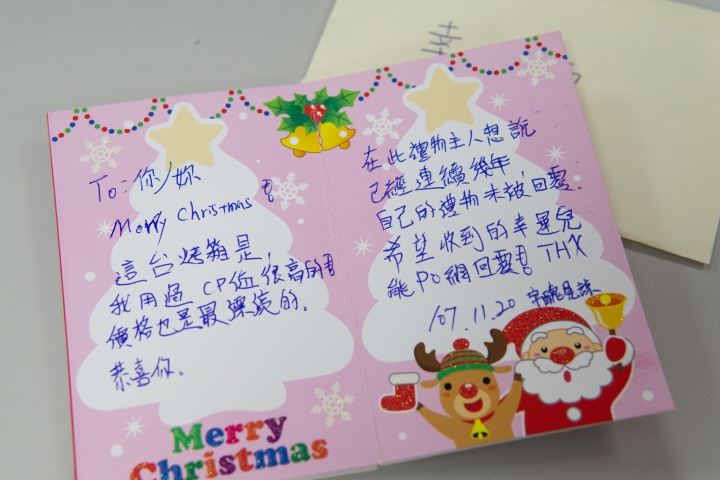 To: 你/妳
Merry Christmas !
這台烤箱是,
我用過 CP值很高的!
價格也是最漂亮的.
恭喜你.
Merry
Christmas
在此禮物主人想說
已經連續幾年,
自己的禮物未被回覆.
希望收到的幸運兒
能PO網回覆! THX
107.11.20
幸